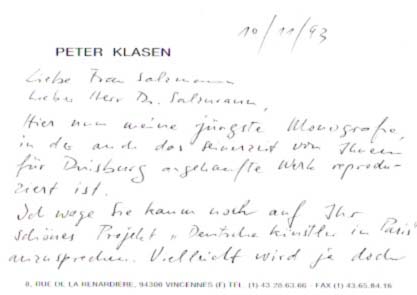 10/11/93
PETER KLASEN
Liebe Frau Salzmann
Lieber Herr Dr. Salzmann,
Hier nun meine jüngste Monografie,
in der auch das seinerzeit von Ihnen
für Duisburg angekaufte Werk reprodu-
ziert ist.
Ich wage Sie kaum noch auf Ihr
schönes Projekt "Deutsche Künstler in Paris"
anzusprechen. Vielleicht wird ja doch
8, RUE DE LA RENARDIERE, 94300 VINCENNES (F) TEL (1) 43.28.63.66 - FAX (1) 43.65.84.16